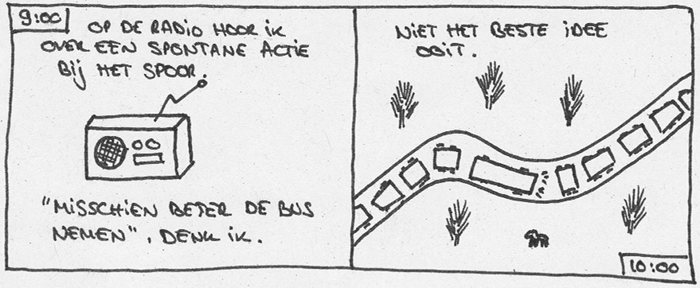 9:00
OP DE RADIO HOOR IK
OVER EEN SPONTANE ACTIE
BIJ HET SPOOR.
"MISSCHIEN BETER DE BUS
NEMEN", DENK IK.
NIET HET BESTE IDEE
OOIT.
10:00